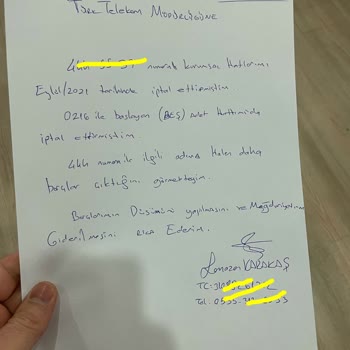 Türk Telekom Müdürlüğüne
444 numaralı kurumsal Hatlarımı
Eylül/2021 tarihinde iptal ettirmiştim
0216 ile başlayan sabit Hattımıda
iptal ettirmiştim.
444 numara ile ilgili adıma Halen daha
borçlar çıktığını görmekteyim.
Borçlarımın Düşümü yapılmasını ve Mağduriyetimin
Giderilmesini Rica Ederim.
Ramazan KARAKAŞ
TC:
Tel: 0535